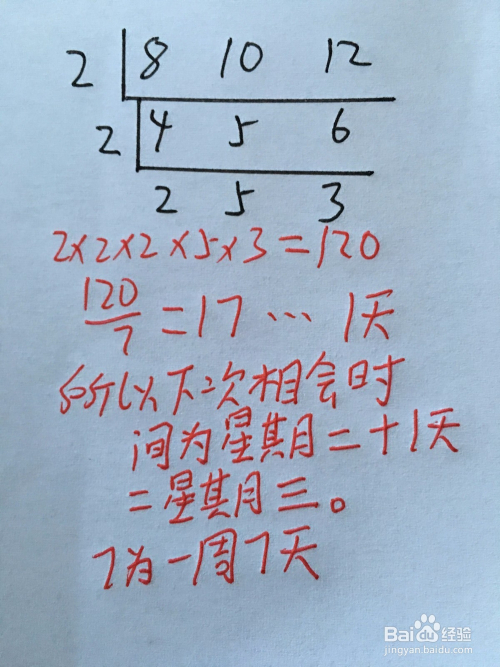 2 8 10 12
2 4 5 6
2 5 3
2×2×2×5×3=120
120/7=17…1天
所以下次相会时
间为星期二+1天
=星期三。
7为一周7天
Bai du 经验
jingyan.baidu.com